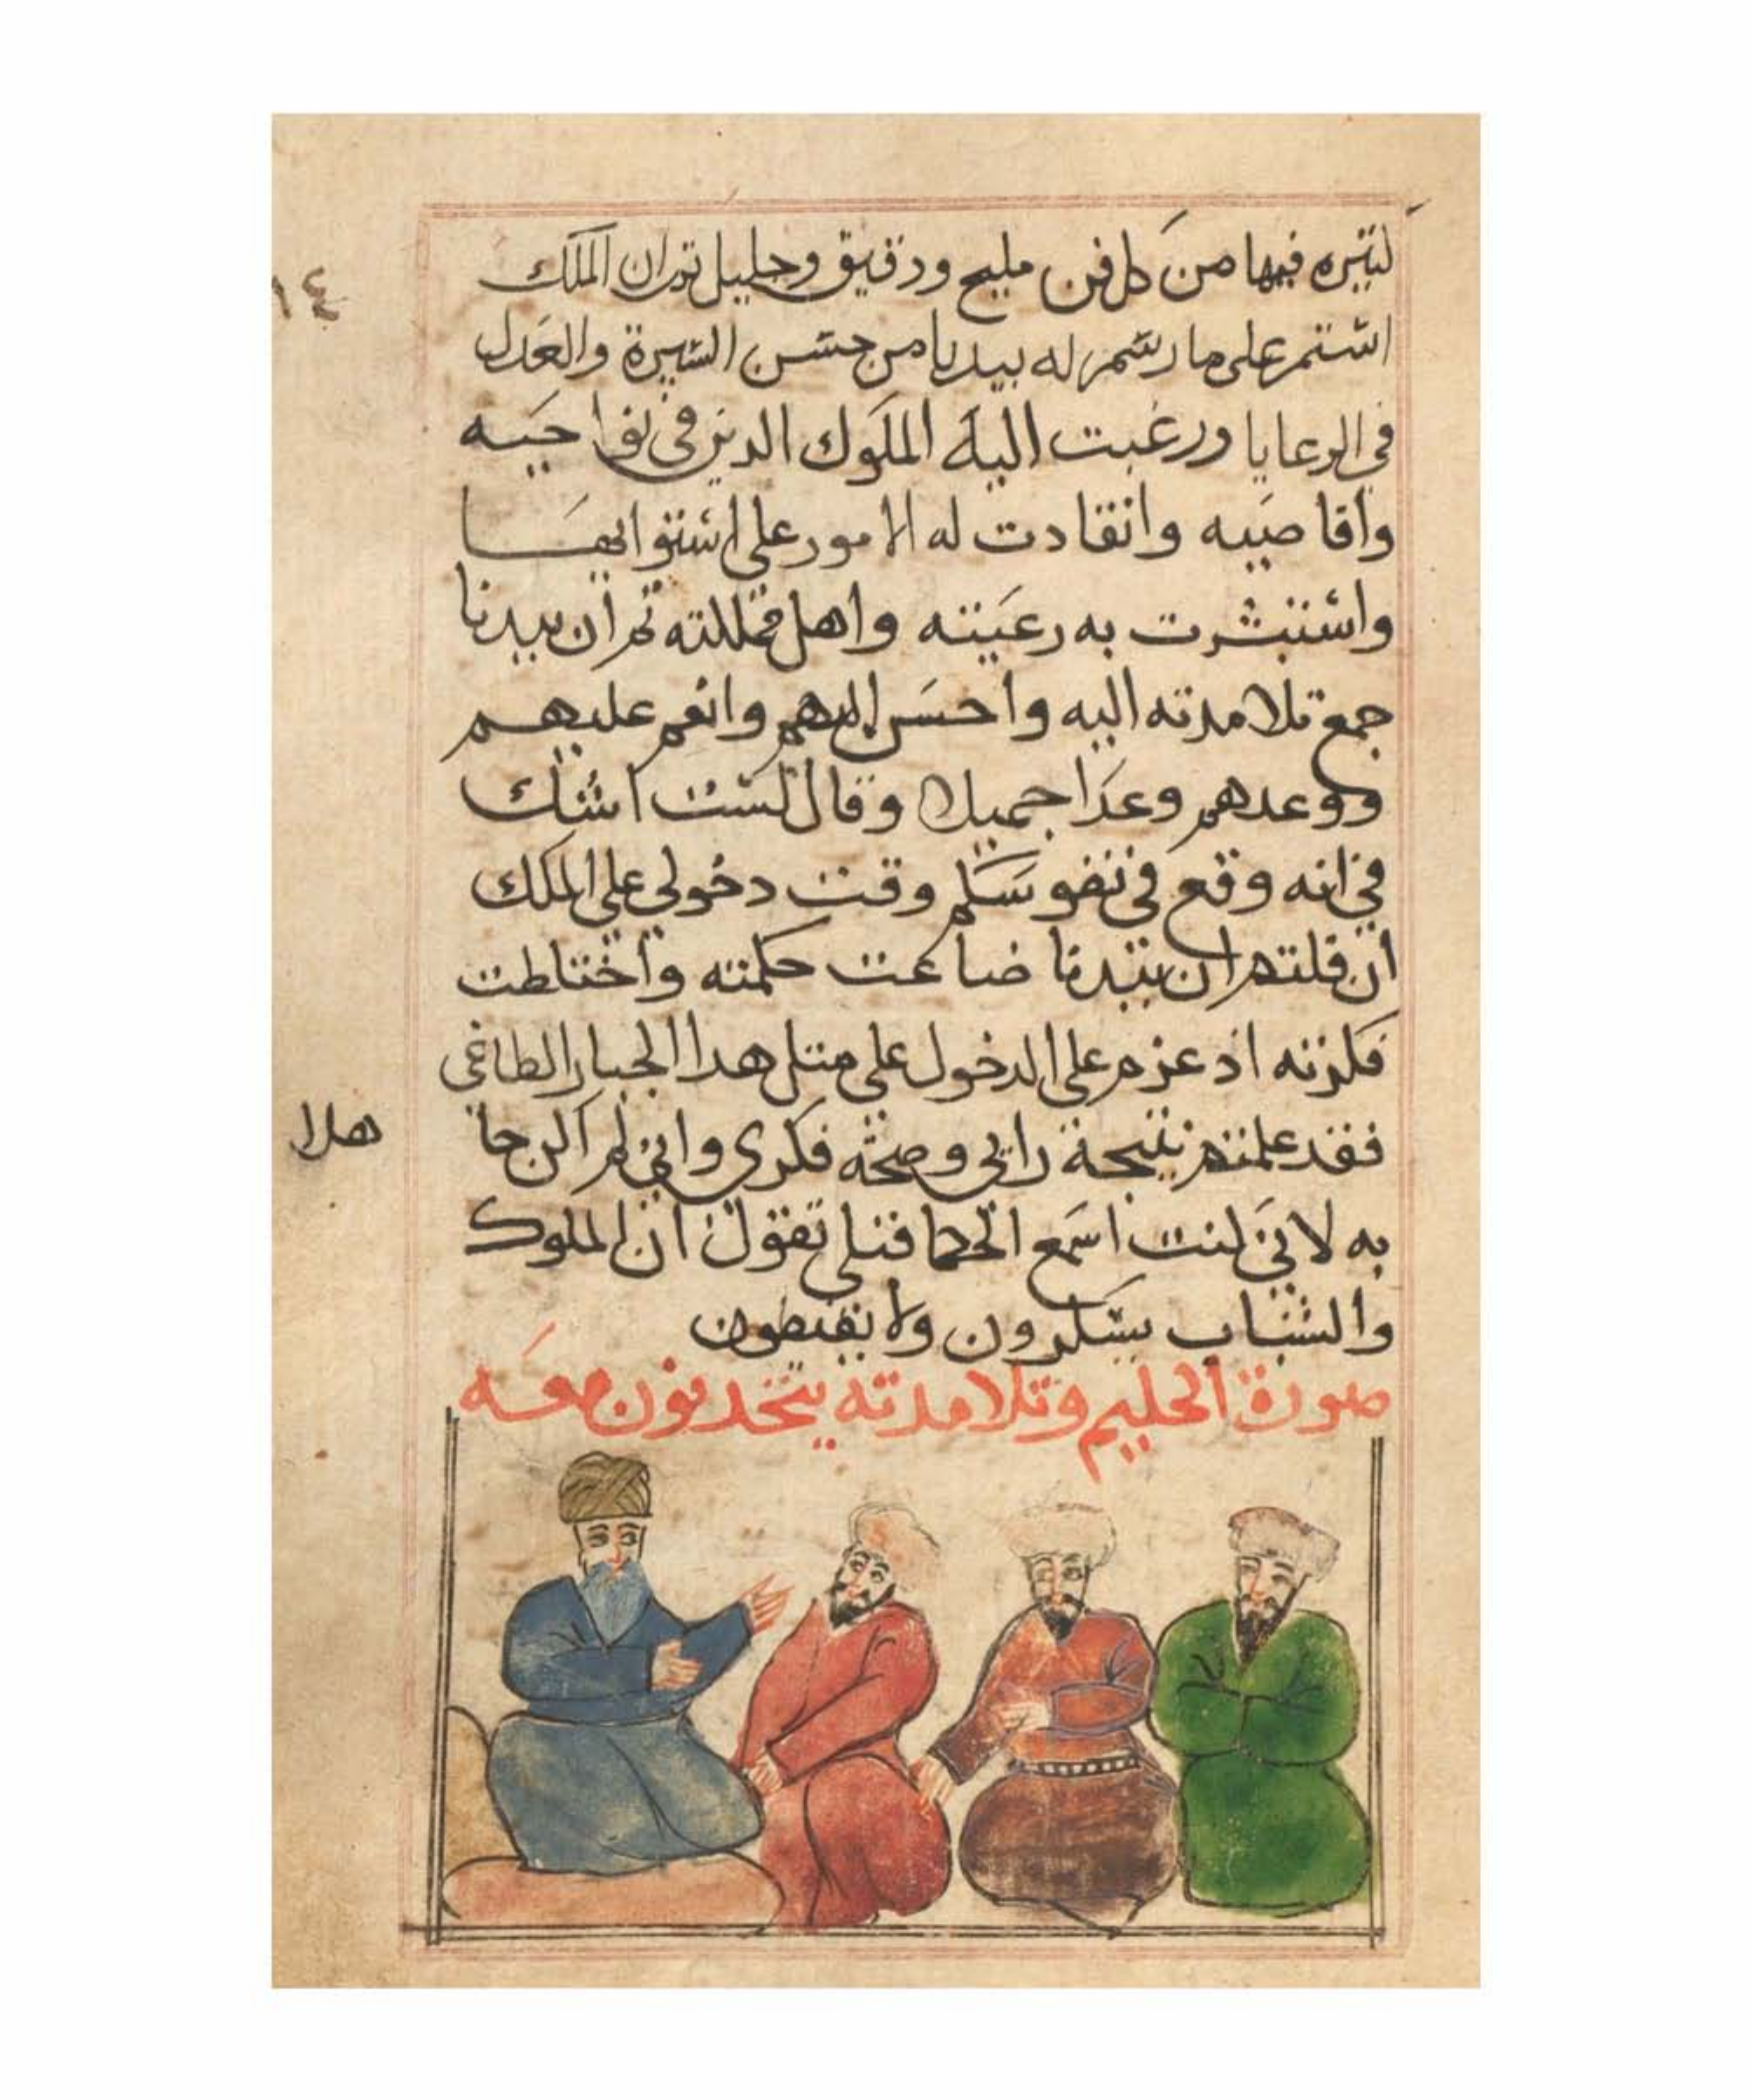 كثيره فيها من كل فن مليح ودقيق وجليل ثم ان الملك
استمر على ما رسم له بيدبا من حسن السيرة والعدل
في الرعايا ورغبت اليه الملوك الدين في نواحيه
وأقاصيه وانقادت له الامور على استوايها
واستبشرت به رعيته واهل مملكته ثم ان بيدبا
جمع تلامدته اليه واحسن اليهم وانعم عليهم
ووعدهم وعدا جميلا وقال لست اشك
في انه وقع في نفوسكم وقت دخولي على الملك
ان قلتم ان بيدبا ضاعت حكمته واختلطت
فكرته اذ عزم على الدخول على متل هدا الجبار الطاغي
فقد علمتم نتيجة رايي وصحة فكري واني لم اكن جا
هلا
به لاني كنت اسمع الحكما قبلي تقول ان الملوك
والشباب يسكرون ولا
صورة الحكيم وتلامدته يتحدثون معه
١٤